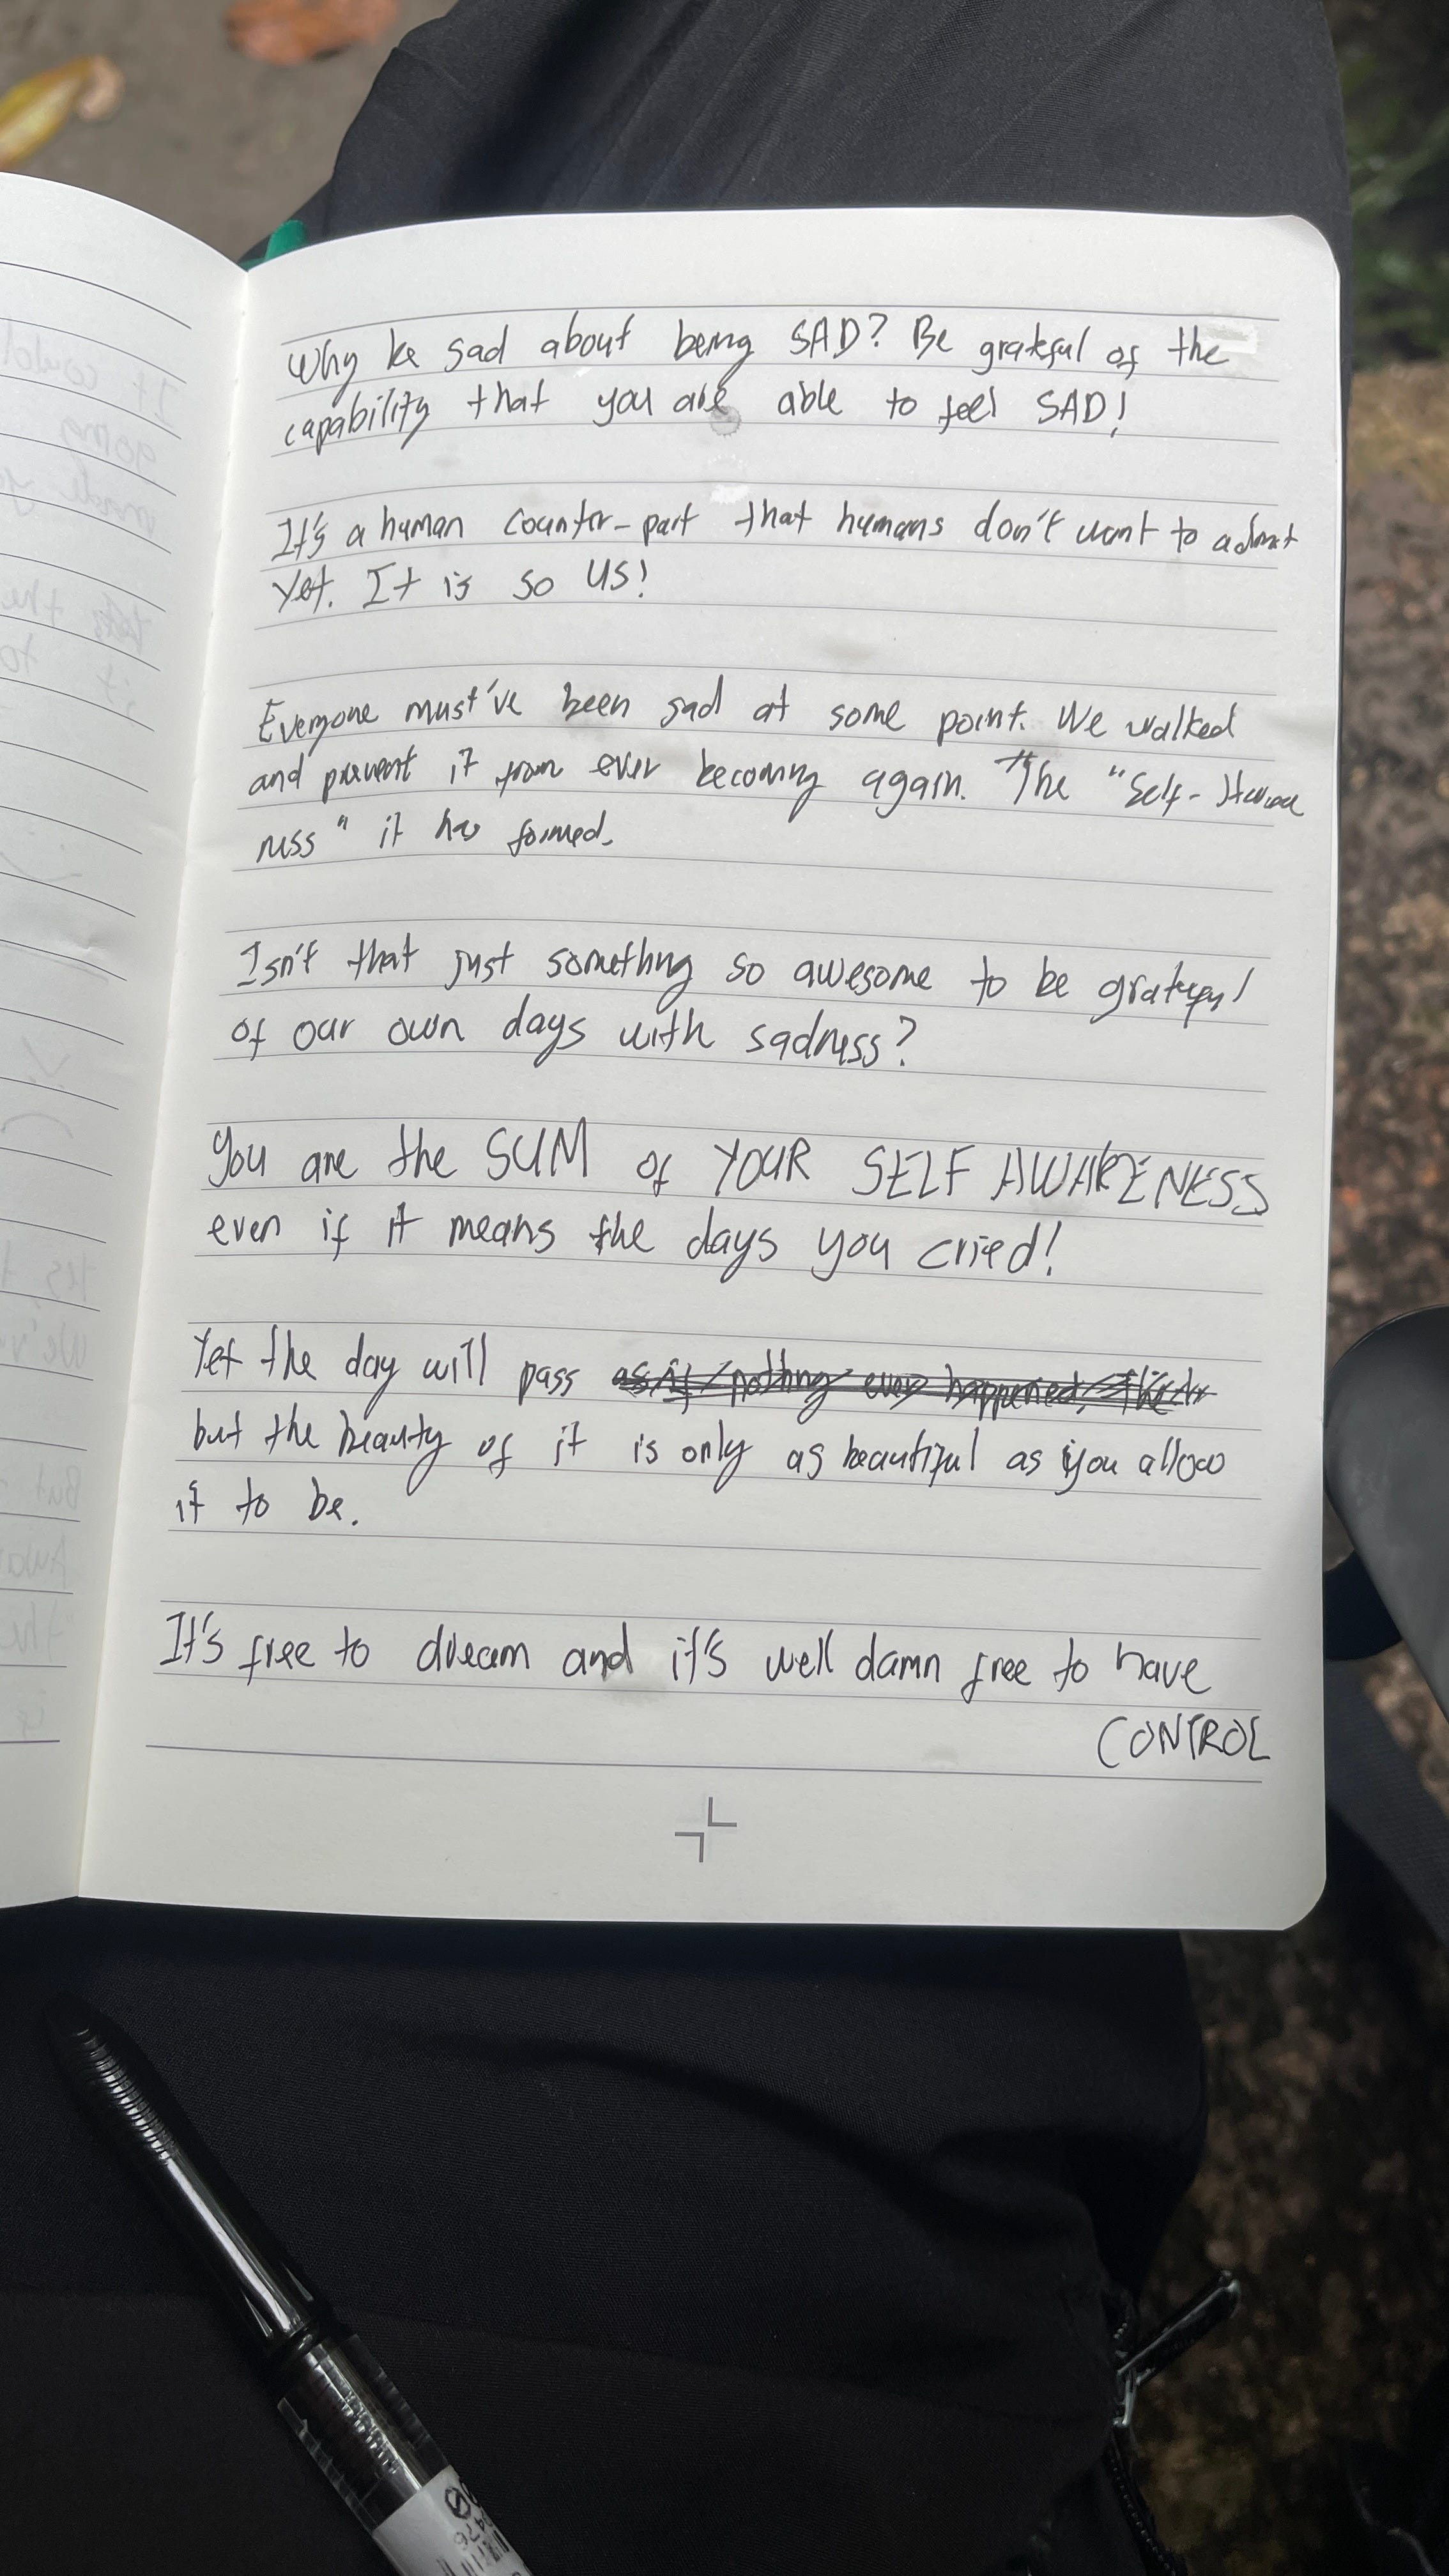 Why be sad about being SAD? Be grateful of the
capability that you are able to feel SAD!
It's a human counter-part that humans don't want to admit
Yet. It is so US!
Everyone must've been sad at some point. We walked
and prevent it from ever becoming again. The "Self-Aware
ness" it has formed.
Isn't that just something so awesome to be grateful
of our own days with sadness?
You are the SUM of YOUR SELF AWARENESS
even if it means the days you cried!
Yet the day will pass as if nothing ever happened, the
but the beauty of it is only as beautiful as you allow
it to be.
It's free to dream and it's well damn free to have
CONTROL